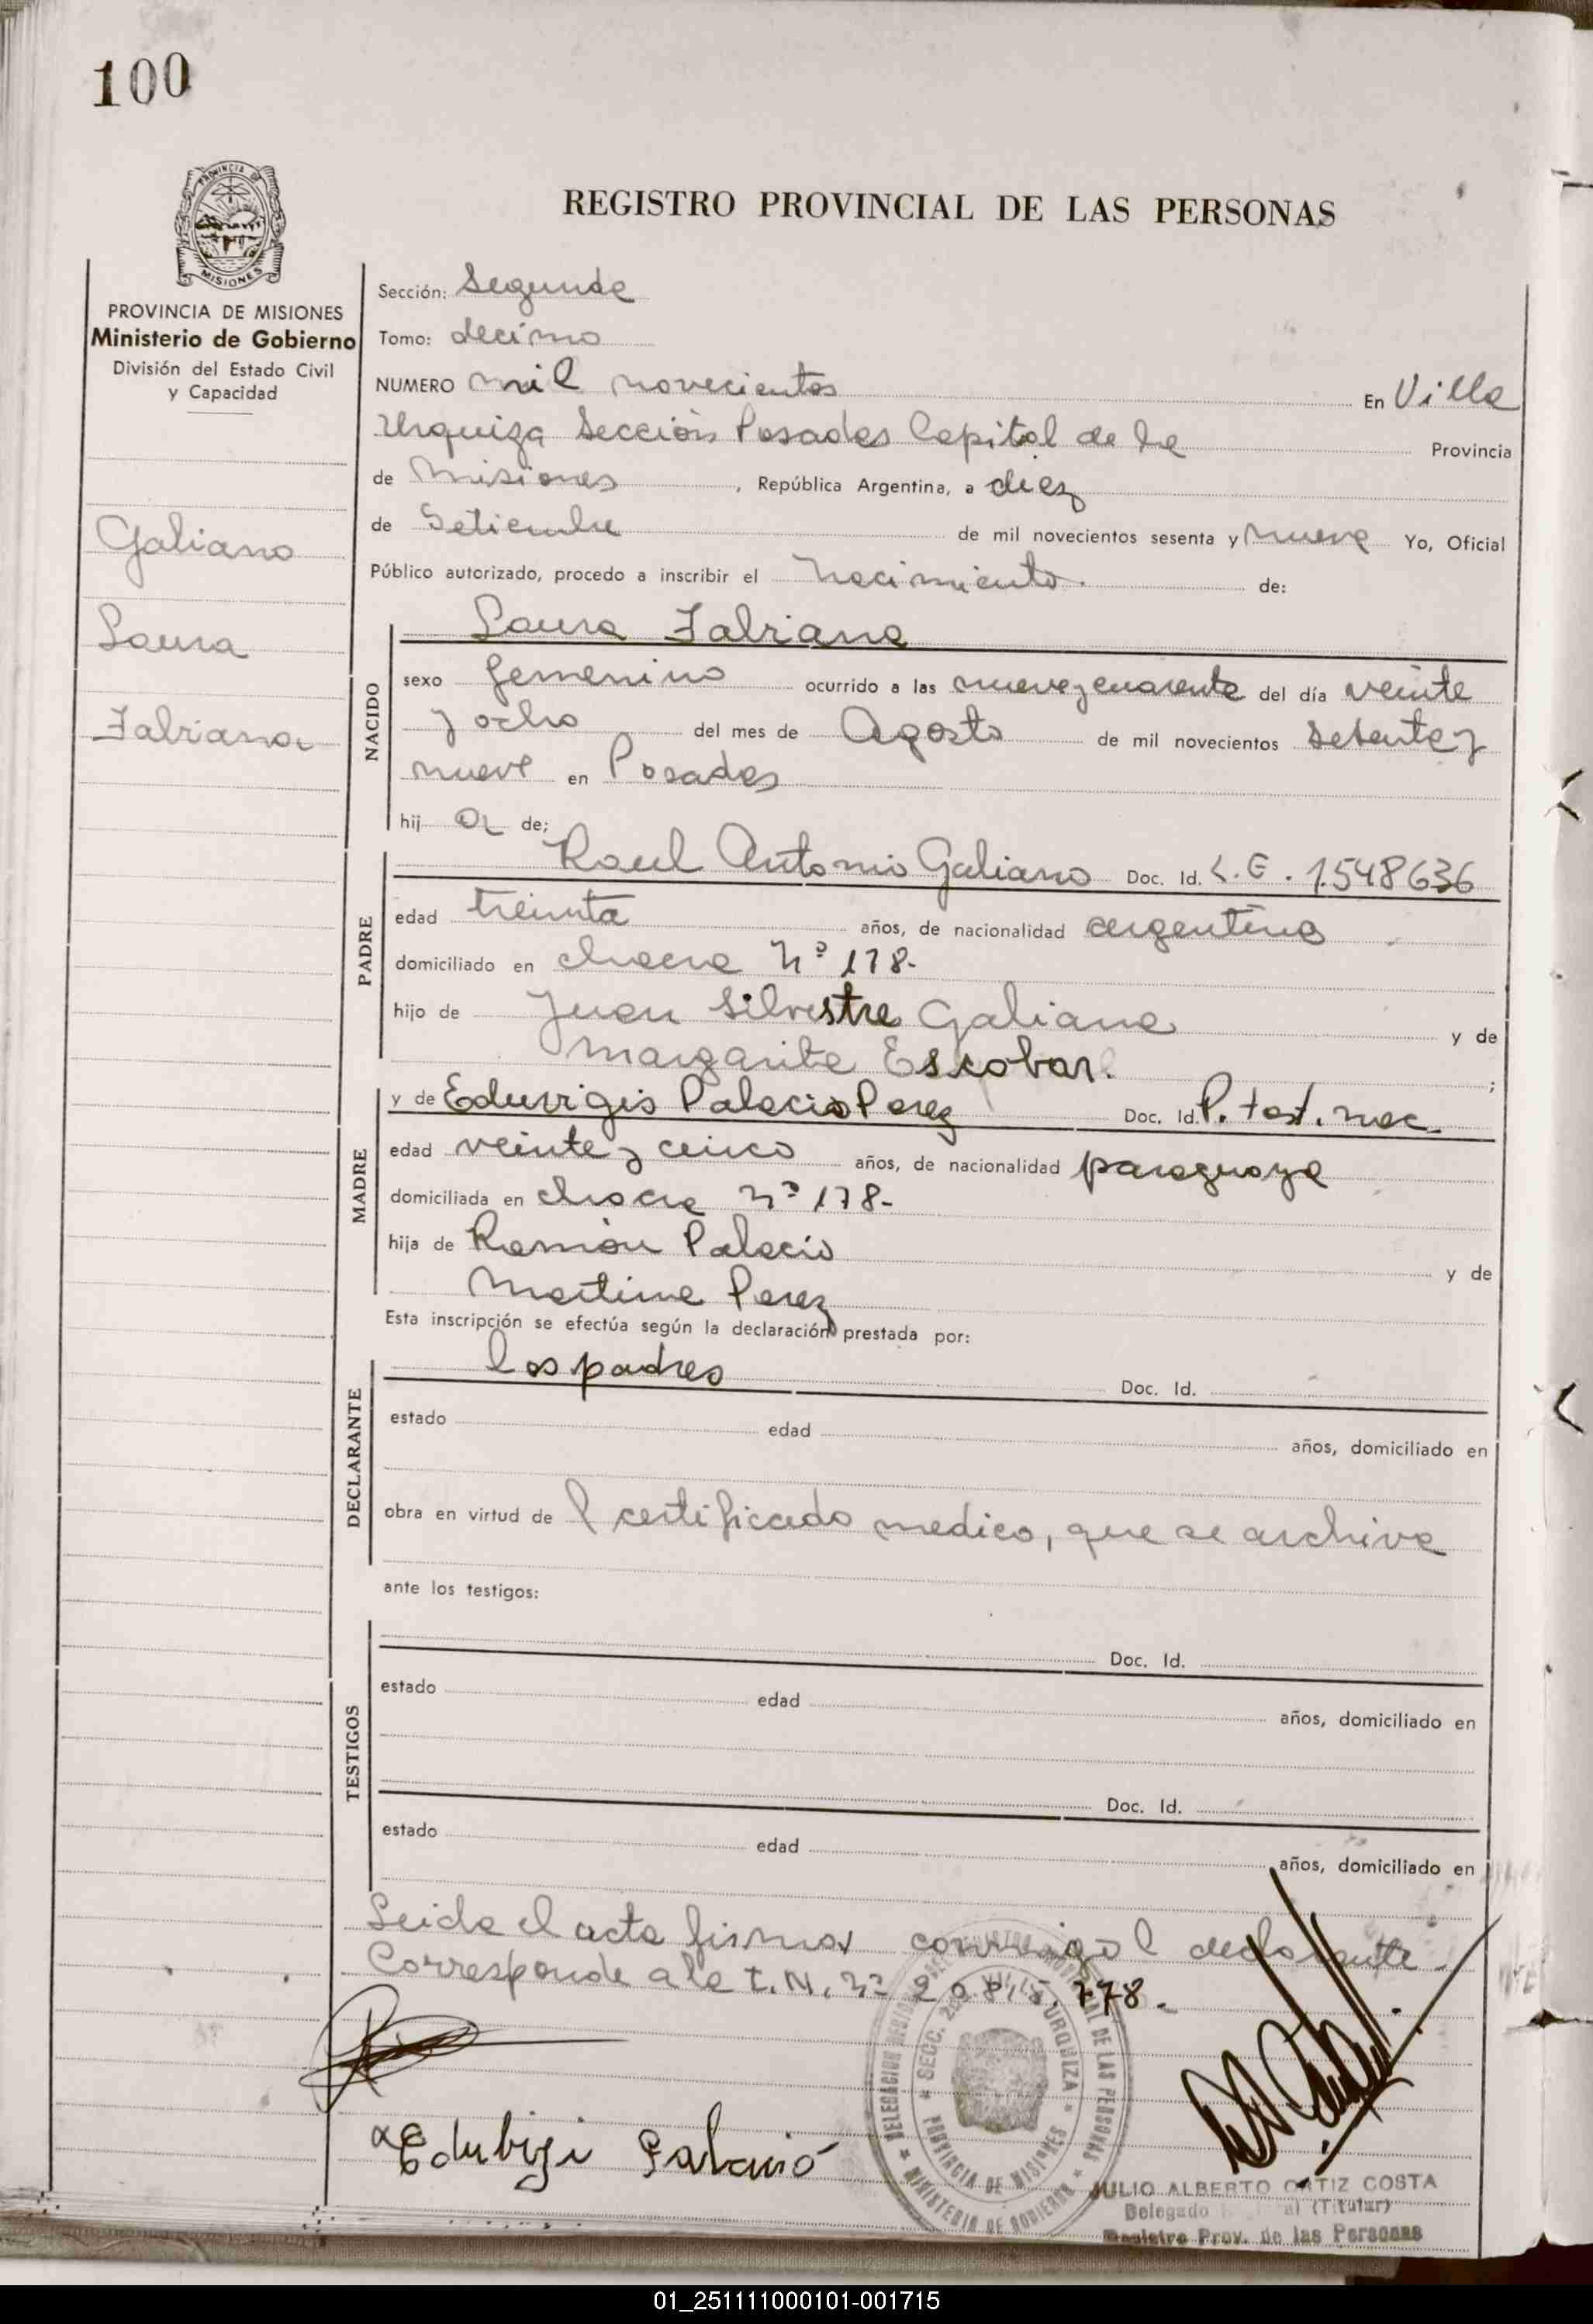 100
PROVINCIA DE MISIONES
REGISTRO PROVINCIAL DE LAS PERSONAS
PROVINCIA DE MISIONES
Ministerio de Gobierno
División del Estado Civil
y Capacidad
Galiano
Laura
Fabriana
Sección: Segunda
Tomo: decimo
NUMERO mil novecientos En Villa
Urquiza Sección Posadas Capital de la Provincia
de Misiones, República Argentina, a diez
de Setiembre de mil novecientos sesenta y nueve Yo, Oficial
Público autorizado, procedo a inscribir el nacimiento. de:
Laura Fabriana
NACIDO
sexo femenino ocurrido a las nueve y cuarenta del día veinte
y ocho del mes de Agosto de mil novecientos setenta y
nueve en Posadas
hij a de;
PADRE
Raul Antonio Galiano Doc. Id. L.E. 1.548636
edad treinta años, de nacionalidad argentino
domiciliado en chacra Nº 178.
hijo de Juan Silvestre Galiano y de
Margarita Escobar. ;
MADRE
y de Eduvigis Palacio Perez Doc. Id. P. test. nac.
edad veinte y cinco años, de nacionalidad paraguaya
domiciliada en chacra nº 178-
hija de Ramón Palacio y de
Martina Perez
Esta inscripción se efectúa según la declaración prestada por:
DECLARANTE
los padres Doc. Id.
estado edad años, domiciliado en
obra en virtud de l certificado medico, que se archiva
ante los testigos:
TESTIGOS
Doc. Id.
estado edad años, domiciliado en
Doc. Id.
estado edad años, domiciliado en
Leida el acta firman conmigo l declarante.
Corresponde a la T.N. nº 20.815.778.
SECC. 2da. VILLA URQUIZA
PROVINCIA DE MISIONES
MINISTERIO DE GOBIERNO
Edubigi Palació
JULIO ALBERTO ORTIZ COSTA
Delegado (Titular)
Registro Prov. de las Personas
01_251111000101-001715